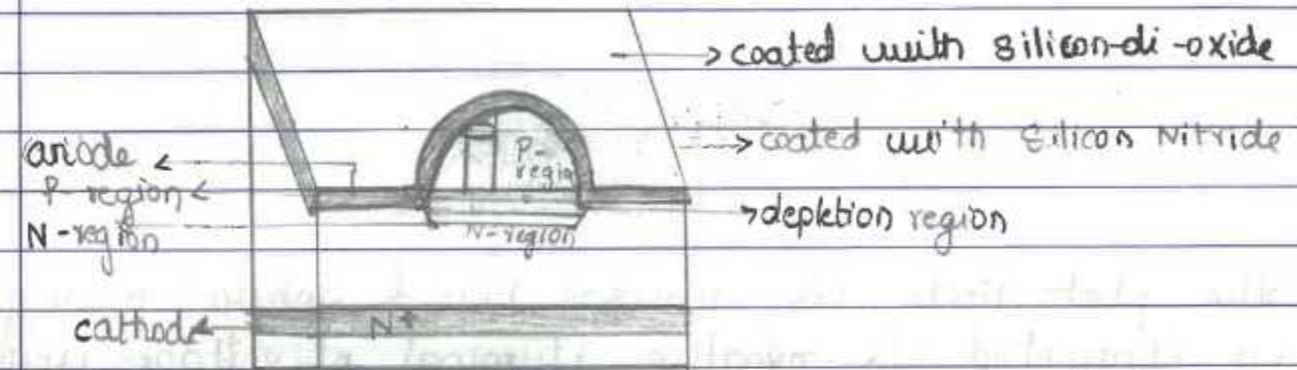 coated with silicon-di-oxide
coated with Silicon Nitride
anode
P-region
P-
regio
N-region
depletion region
N-region
cathode
N+